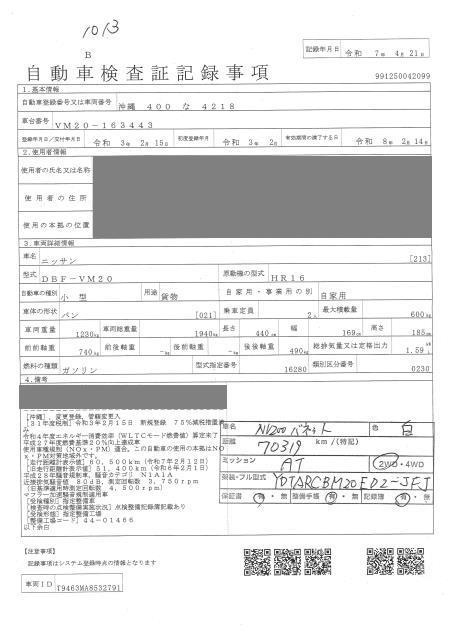 1013
B
記録年月日 令和 7年 4月 21日
自動車検査証記録事項
991250042099
1.基本情報
自動車登録番号又は車両番号 沖縄 400 な 4218
車台番号 VM20-163443
登録年月日/交付年月日 令和 3年 2月 15日 初度登録年月 令和 3年 2月 有効期間の満了する日 令和 8年 2月 14日
2.使用者情報
使用者の氏名又は名称
使用者の住所
使用の本拠の位置
3.車両詳細情報
車名 ニッサン [213]
型式 DBF-VM20 原動機の型式 HR16
自動車の種別 小型 用途 貨物 自家用・事業用の別 自家用
車体の形状 バン [021] 乗車定員 2人 最大積載量 600kg
車両重量 1230kg 車両総重量 1940kg 長さ 440cm 幅 169cm 高さ 185cm
前前軸重 740kg 前後軸重 -kg 後前軸重 -kg 後後軸重 490kg 総排気量又は定格出力 1.59
燃料の種類 ガソリン 型式指定番号 16280 類別区分番号 0230
4.備考
[沖縄],変更登録,管轄変更入
[31年度税制]令和3年2月15日 新規登録 75%減税措置済
み
令和4年度エネルギー消費効率(WLTCモード燃費値)算定未了
平成27年度燃費基準20%向上達成車
使用車種規制(NOx・PM)適合、この自動車の使用の本拠はNO
x・PM対策地域外です。
[走行距離計表示値]60,500km(令和7年2月12日)
[旧走行距離計表示値]51,400km(令和6年2月1日)
平成28年騒音、騒音カテゴリ N1A1A
近接排気騒音値 80dB,測定回転数 3,750rpm
[旧基準適用時測定回転数 4,500rpm]
マフラー加速騒音規制適用車
[受検種別]指定整備車
[検査時の点検整備実施状況]点検整備記録簿記載あり
[受検形態]指定整備工場
[整備工場コード]44-01466
以下余白
車名 NV200バネット 色 白
距離 70319 km/(特記)
ミッション AT 2WD・4WD
類別・フル型式 YDTARCBM20ED2-JFJ
保証書 有・無 整備手帳 有・無 記録簿 有・無
【注意事項】
記録事項はシステム登録時点の情報となります
車両ID T9463MA8532791